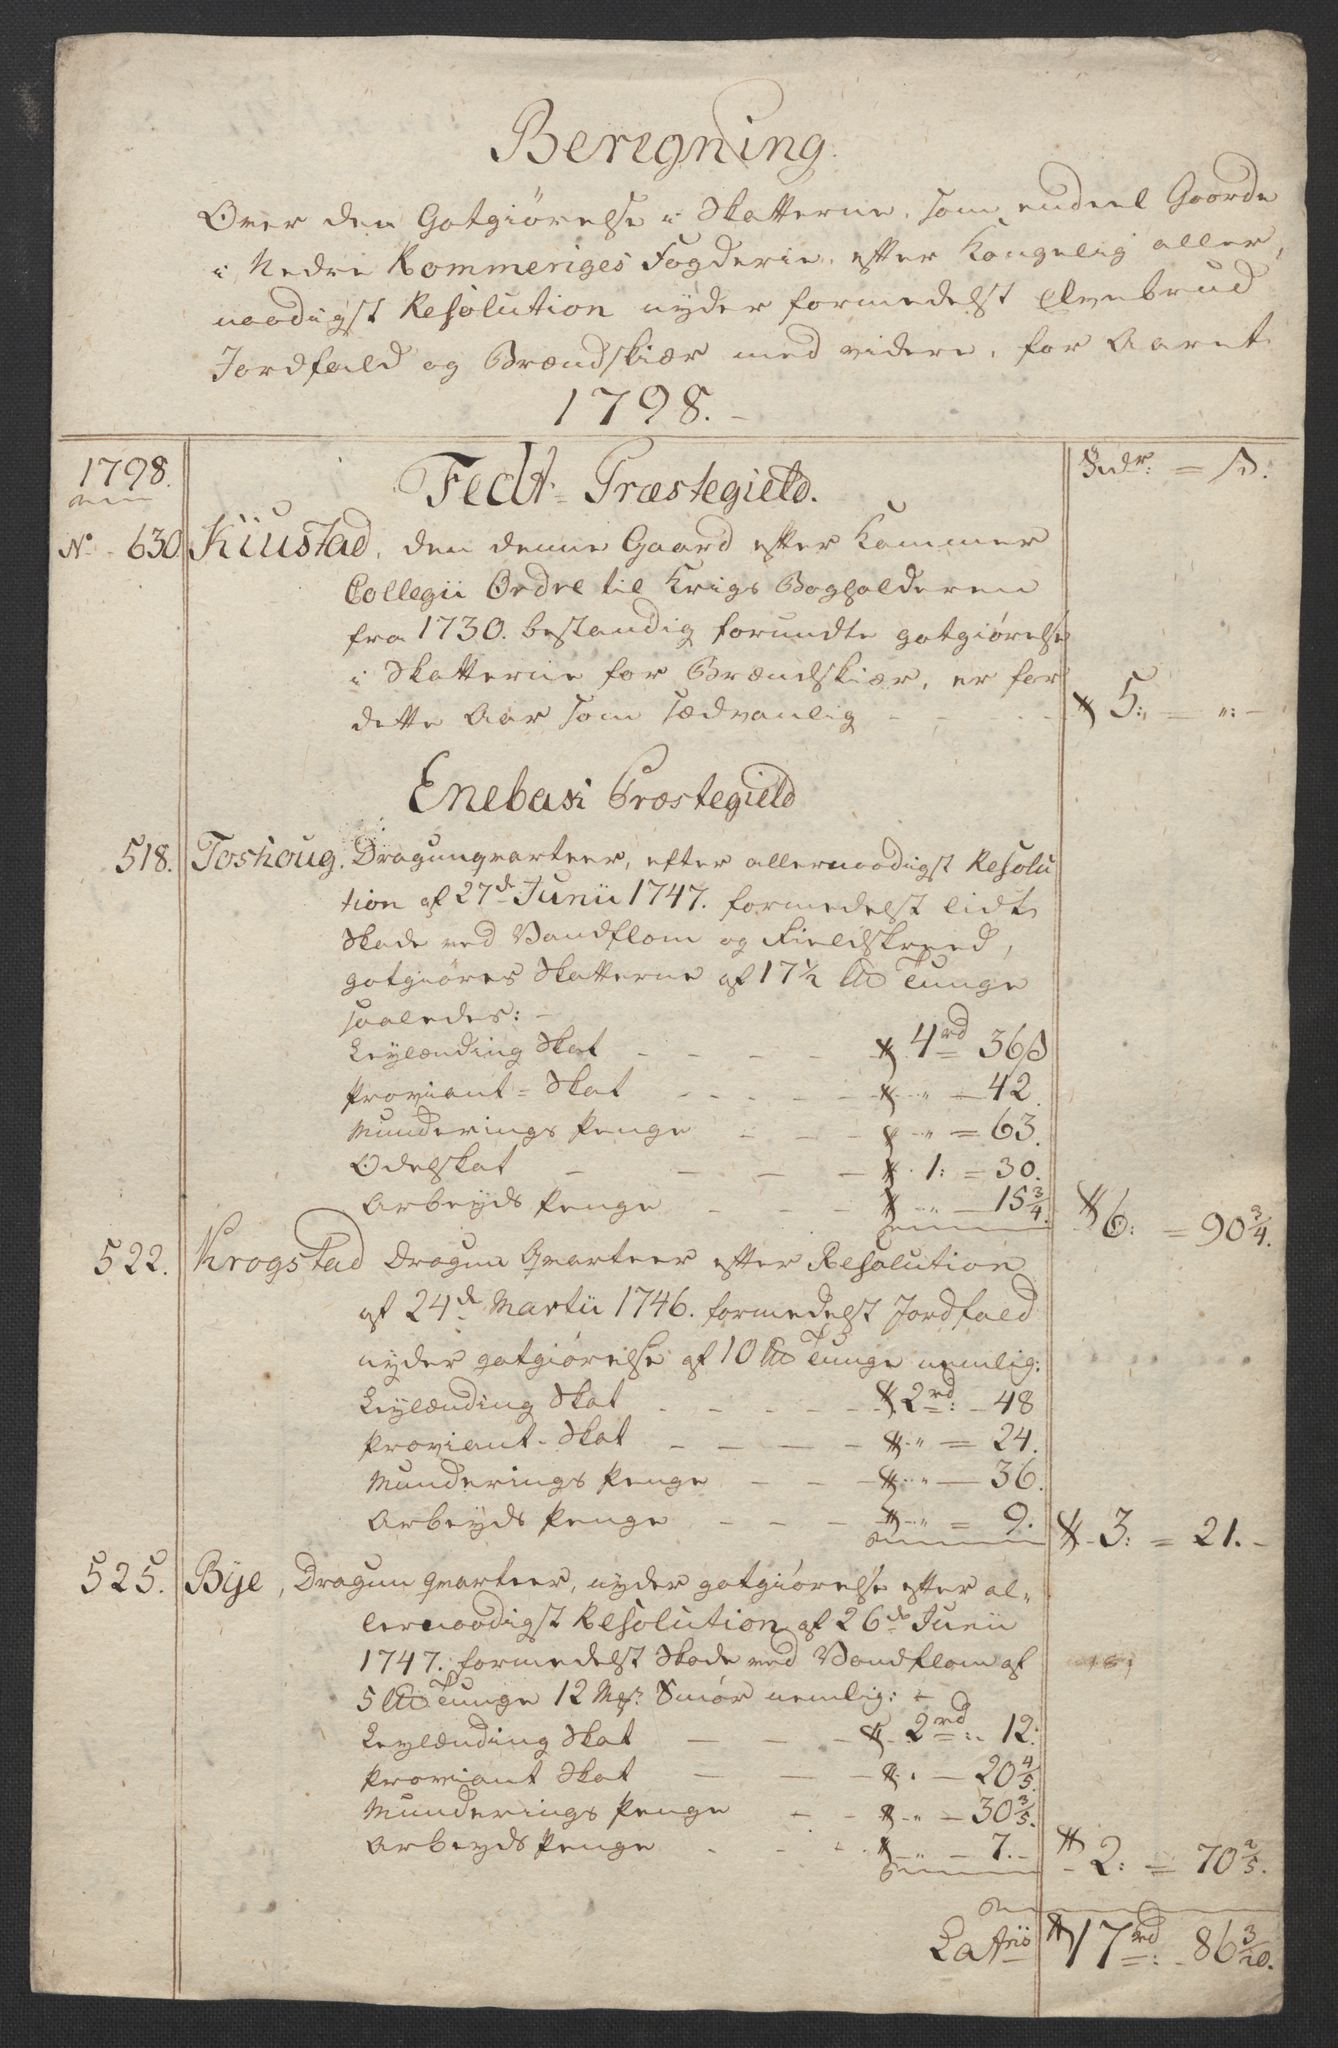 Beregning.
Over den Gotgiørelse i Skatterne, som endeel Gaarde
i Nedre Rommeriges Fogderie, efter Kongelig aller,
naadigst Resolution nyder formedelst Elvebrud
Jordfald og Brændskiær med videre, for Aaret
1798.
1798.
Fedt- Præstegield.
Rdr: = ß.
No. 630. Kiustad, den denne Gaard efter Kammer
Collegii Ordre til Krigs Bogholderen
fra 1730. bestandig forundte gotgiørelse
i Skatterne for Brændskiær, er for
dette Aar som sædvanlig - - - 5: = ": -
Enebak Præstegield
518. Toshoug. Dragunqvarteer, efter allernaadigst Resolu
tion af 27de Junii 1747. formedelst lidt
Skade ved Vandflom og Fieldskreed,
gotgiøres Skatterne af 17½ L℔ Tunge
saaledes: -
Leylænding Skat - - - 4rd = 36ß
Proviant = Skat - - - " - 42.
Munderings Penge - - - " = 63.
Odelskat - - - 1: = 30.
Arbeyds Penge - - - " - 15 3/4. 6: = 90 3/4.
522. Krogstad Dragun Qvarteer efter Resolution
af 24de Martii 1746. formedelst Jordfald
nyder gotgiørelse af 10 L℔ Tunge nemlig:
Leylænding Skat - - - 2rd: - 48
Proviant - Skat - - - " = 24.
Munderings Penge - - - " - 36.
Arbeyds Penge - - - " = 9. 3: = 21. -
525. Bye, Dragun Qvarteer, nyder gotgiørelse efter al-
lernaadigst Resolution af 26de Junii
1747. formedelst Skade ved Vandflom af
5 L℔ Tunge 12 Mrk. Smør nemlig: -
Leylænding Skat - - - 2rd: - 12:
Proviant Skat - - - " - 20 4/5.
Munderings Penge - - - " - 30 3/5.
Arbeyds Penge - - - " - 7. - 2: = 70 2/5.
Latris 17rd: - 86 3/20.